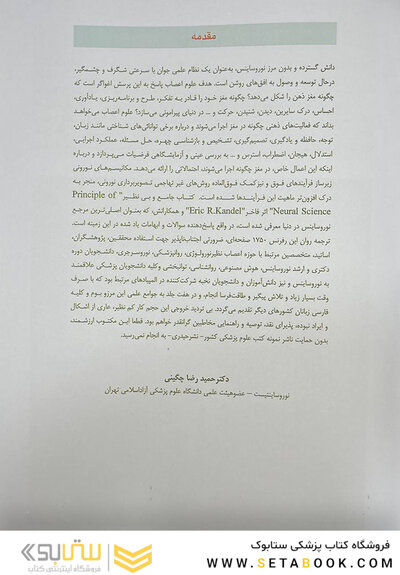 مقدمه
دانش گسترده و بدون مرز نوروساینس، به‌عنوان یک نظام علمی جوان با سرعتی شگرف و چشمگیر،
درحال توسعه و وصول به افق‌های روشن است. هدف علوم اعصاب پاسخ به این پرسش اغواگر است که
چگونه مغز ذهن را شکل می‌دهد؟ چگونه مغز خود را قادر به تفکر، طرح و برنامه‌ریزی، یادآوری،
احساس، درک سایرین، دیدن، شنیدن، حرکت و ... در دنیای پیرامونی می‌سازد؟ علوم اعصاب می‌خواهد
بداند که فعالیت‌های ذهنی چگونه در مغز اجرا می‌شوند و درباره برخی توانائی‌های شناختی مانند زبان،
توجه، حافظه و یادگیری، تصمیم‌گیری، تشخیص و بازشناسی چهره، حل مسئله، عملکرد اجرایی،
استدلال، هیجان، اضطراب، استرس و ... به بررسی عینی و آزمایشگاهی فرضیات می‌پردازد و درباره
اینکه این اعمال خاص، در مغز چگونه اجرا می‌شوند، احتمالاتی را ارائه می‌دهند. مکانیسم‌های نورونی
زیرساز فرآیندهای فوق و نیز کمک فوق‌العاده روش‌های غیر تهاجمی تصویربرداری نورونی، منجر به
درک افزون‌تر ماهیت این فرآیندها شده است. کتاب جامع و بی نظیر "Principle of
Neural Science" اثر فاخر "Eric R.Kandel" و همکارانش، که بعنوان اصلی‌ترین مرجع
نوروساینس در دنیا معرفی شده است، در واقع پاسخ‌دهنده سوالات و ابهامات یاد شده در این زمینه است.
ترجمه روان این رفرنس ۱۷۵۰ صفحه‌ای، ضرورتی اجتناب‌ناپذیر جهت استفاده محققین، پژوهشگران،
اساتید، متخصصین مرتبط با حوزه اعصاب نظیر نورولوژی، روانپزشکی، نوروسرجری، دانشجویان دوره
دکتری و ارشد نوروساینس، هوش مصنوعی، روانشناسی، توانبخشی و کلیه دانشجویان پزشکی علاقمند
به نوروساینس و نیز دانش‌آموزان و دانشجویان نخبه شرکت‌کننده در المپیادهای مرتبط بود که با صرف
وقت بسیار زیاد و تلاش پیگیر و طاقت‌فرسا انجام، و در هفت جلد به جوامع علمی این مرزو بوم و کلیه
فارسی زبانان کشورهای دیگر تقدیم می‌گردد. بی تردید خروجی این حجم کار کم نظیر، عاری از اشکال
و ایراد نبوده، پذیرای نقد، توصیه و راهنمایی مخاطبین گرانقدر خواهم بود. قطعا این مکتوب ارزشمند،
بدون حمایت ناشر نمونه کتب علوم پزشکی کشور- نشرحیدری- به انجام نمی‌رسید.
دکتر حمید رضا چگینی
نوروساینتیست – عضوهیئت علمی دانشگاه علوم پزشکی آزاداسلامی تهران
فروشگاه کتاب پزشکی ستابوک
WWW.SETABOOK.COM
ستابوک
فروشگاه اینترنتی کتاب